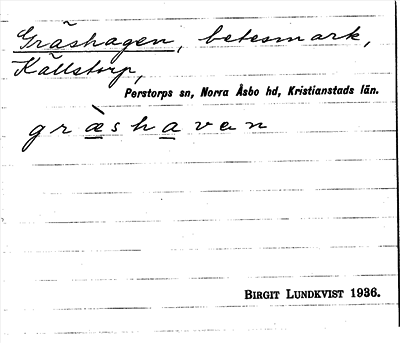 Gräshagen, betesmark,
Källstorp,
Perstorps sn, Norra Åsbo hd, Kristianstads län.
græ̀shavan
BIRGIT LUNDKVIST 1936.